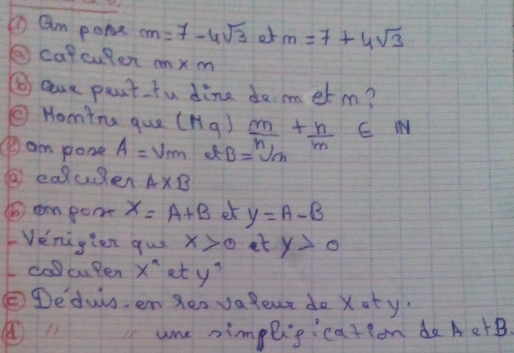 ① On pose m = 7 - 4√3 et n = 7 + 4√3
ⓐ calculer m × n
ⓑ Que peut-tu dire de m et n?
ⓒ Montre que (Mq) m/n + n/m ∈ IN
② on pose A = √m et B = √n
ⓐ calculer A × B
ⓑ on pose X = A + B et y = A - B
- Vérifier que X > 0 et y > 0
- calculer X² et y²
ⓒ Déduis-en les valeur de X et y.
ⓓ " " une simplification de A et B.